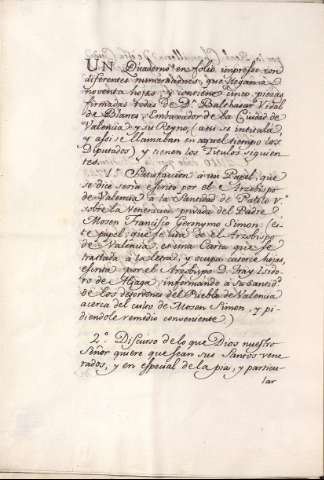 UN Quaderno en folio impreso con
diferentes numeraciones, que llegan à
noventa hojas; y contiene cinco piezas
firmadas todas de Dn. Balthasar Vidal
de Blanes Embaxador de la Ciudad de
Valencia y su Reyno (assi se intitula,
y assi se llamaban en aquel tiempo los
Diputados) y tienen los Titulos siguien
tes.
1º Satisfaccion à un Papel, que
se dice seria escrito por el Arzobispo
de Valencia à la Santidad de Paulo Vº.
sobre la Veneracion privada del Padre
Mosen Francisco Geronymo Simon (es-
te papel, que se dice de el Arzobispo
de Valencia, es una Carta que se
traslada à la letra, y ocupa catorce hojas,
escrita por el Arzobispo D. Fray Isido
ro de Aliaga, informando à su Santid.
de los desordenes del Pueblo de Valencia
acerca del culto de Mosen Simon, y pi
diendole remedio conveniente.)
2º Discurso de lo que Dios nuestro
Señor quiere que sean sus Santos vene
rados, y en especial de la pia, y particu
lar